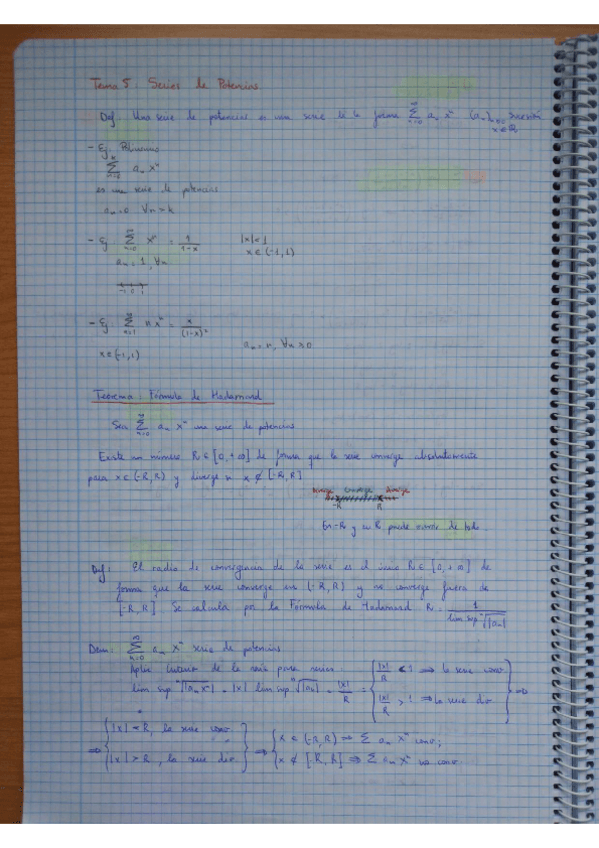 Tema 5: Series de Potencias
Def: Una serie de potencias es una serie de la forma ∑_{n=0}^{∞} a_n x^n (a_n)_{n≥0} sucesión
x ∈ ℝ
- Ej: Polinomio
∑_{n=0}^{k} a_n x^n
es una serie de potencias
a_n = 0 ∀n > k
- Ej: ∑_{n=0}^{∞} x^n = 1/(1-x) |x| < 1
x ∈ (-1, 1)
a_n = 1, ∀n
-1 0 1
- Ej: ∑_{n=1}^{∞} n x^n = x/(1-x)²
a_n = n, ∀n ≥ 0
x ∈ (-1, 1)
Teorema: Fórmula de Hadamard
Sea ∑_{n=0}^{∞} a_n x^n una serie de potencias
Existe un número R ∈ [0, +∞] de forma que la serie converge absolutamente
para x ∈ (-R, R) y diverge si x ∉ [-R, R]
diverge converge diverge
-R R
En -R y en R puede ocurrir de todo
Def: El radio de convergencia de la serie es el único R ∈ [0, +∞] de
forma que la serie converge en (-R, R) y no converge fuera de
[-R, R]. Se calcula por la Fórmula de Hadamard R = 1/(lim sup ⁿ√|a_n|)
Dem: ∑_{n=0}^{∞} a_n x^n serie de potencias
Aplico criterio de la raíz para series:
lim sup ⁿ√|a_n x^n| = |x| lim sup ⁿ√|a_n| = |x|/R = { |x|/R < 1 ⟹ la serie conv
|x|/R > 1 ⟹ la serie div } ⟹
⟹ { |x| < R, la serie conv
|x| > R, la serie div } ⟹ { x ∈ (-R, R) ⟹ ∑ a_n x^n conv;
x ∉ [-R, R] ⟹ ∑ a_n x^n no conv.